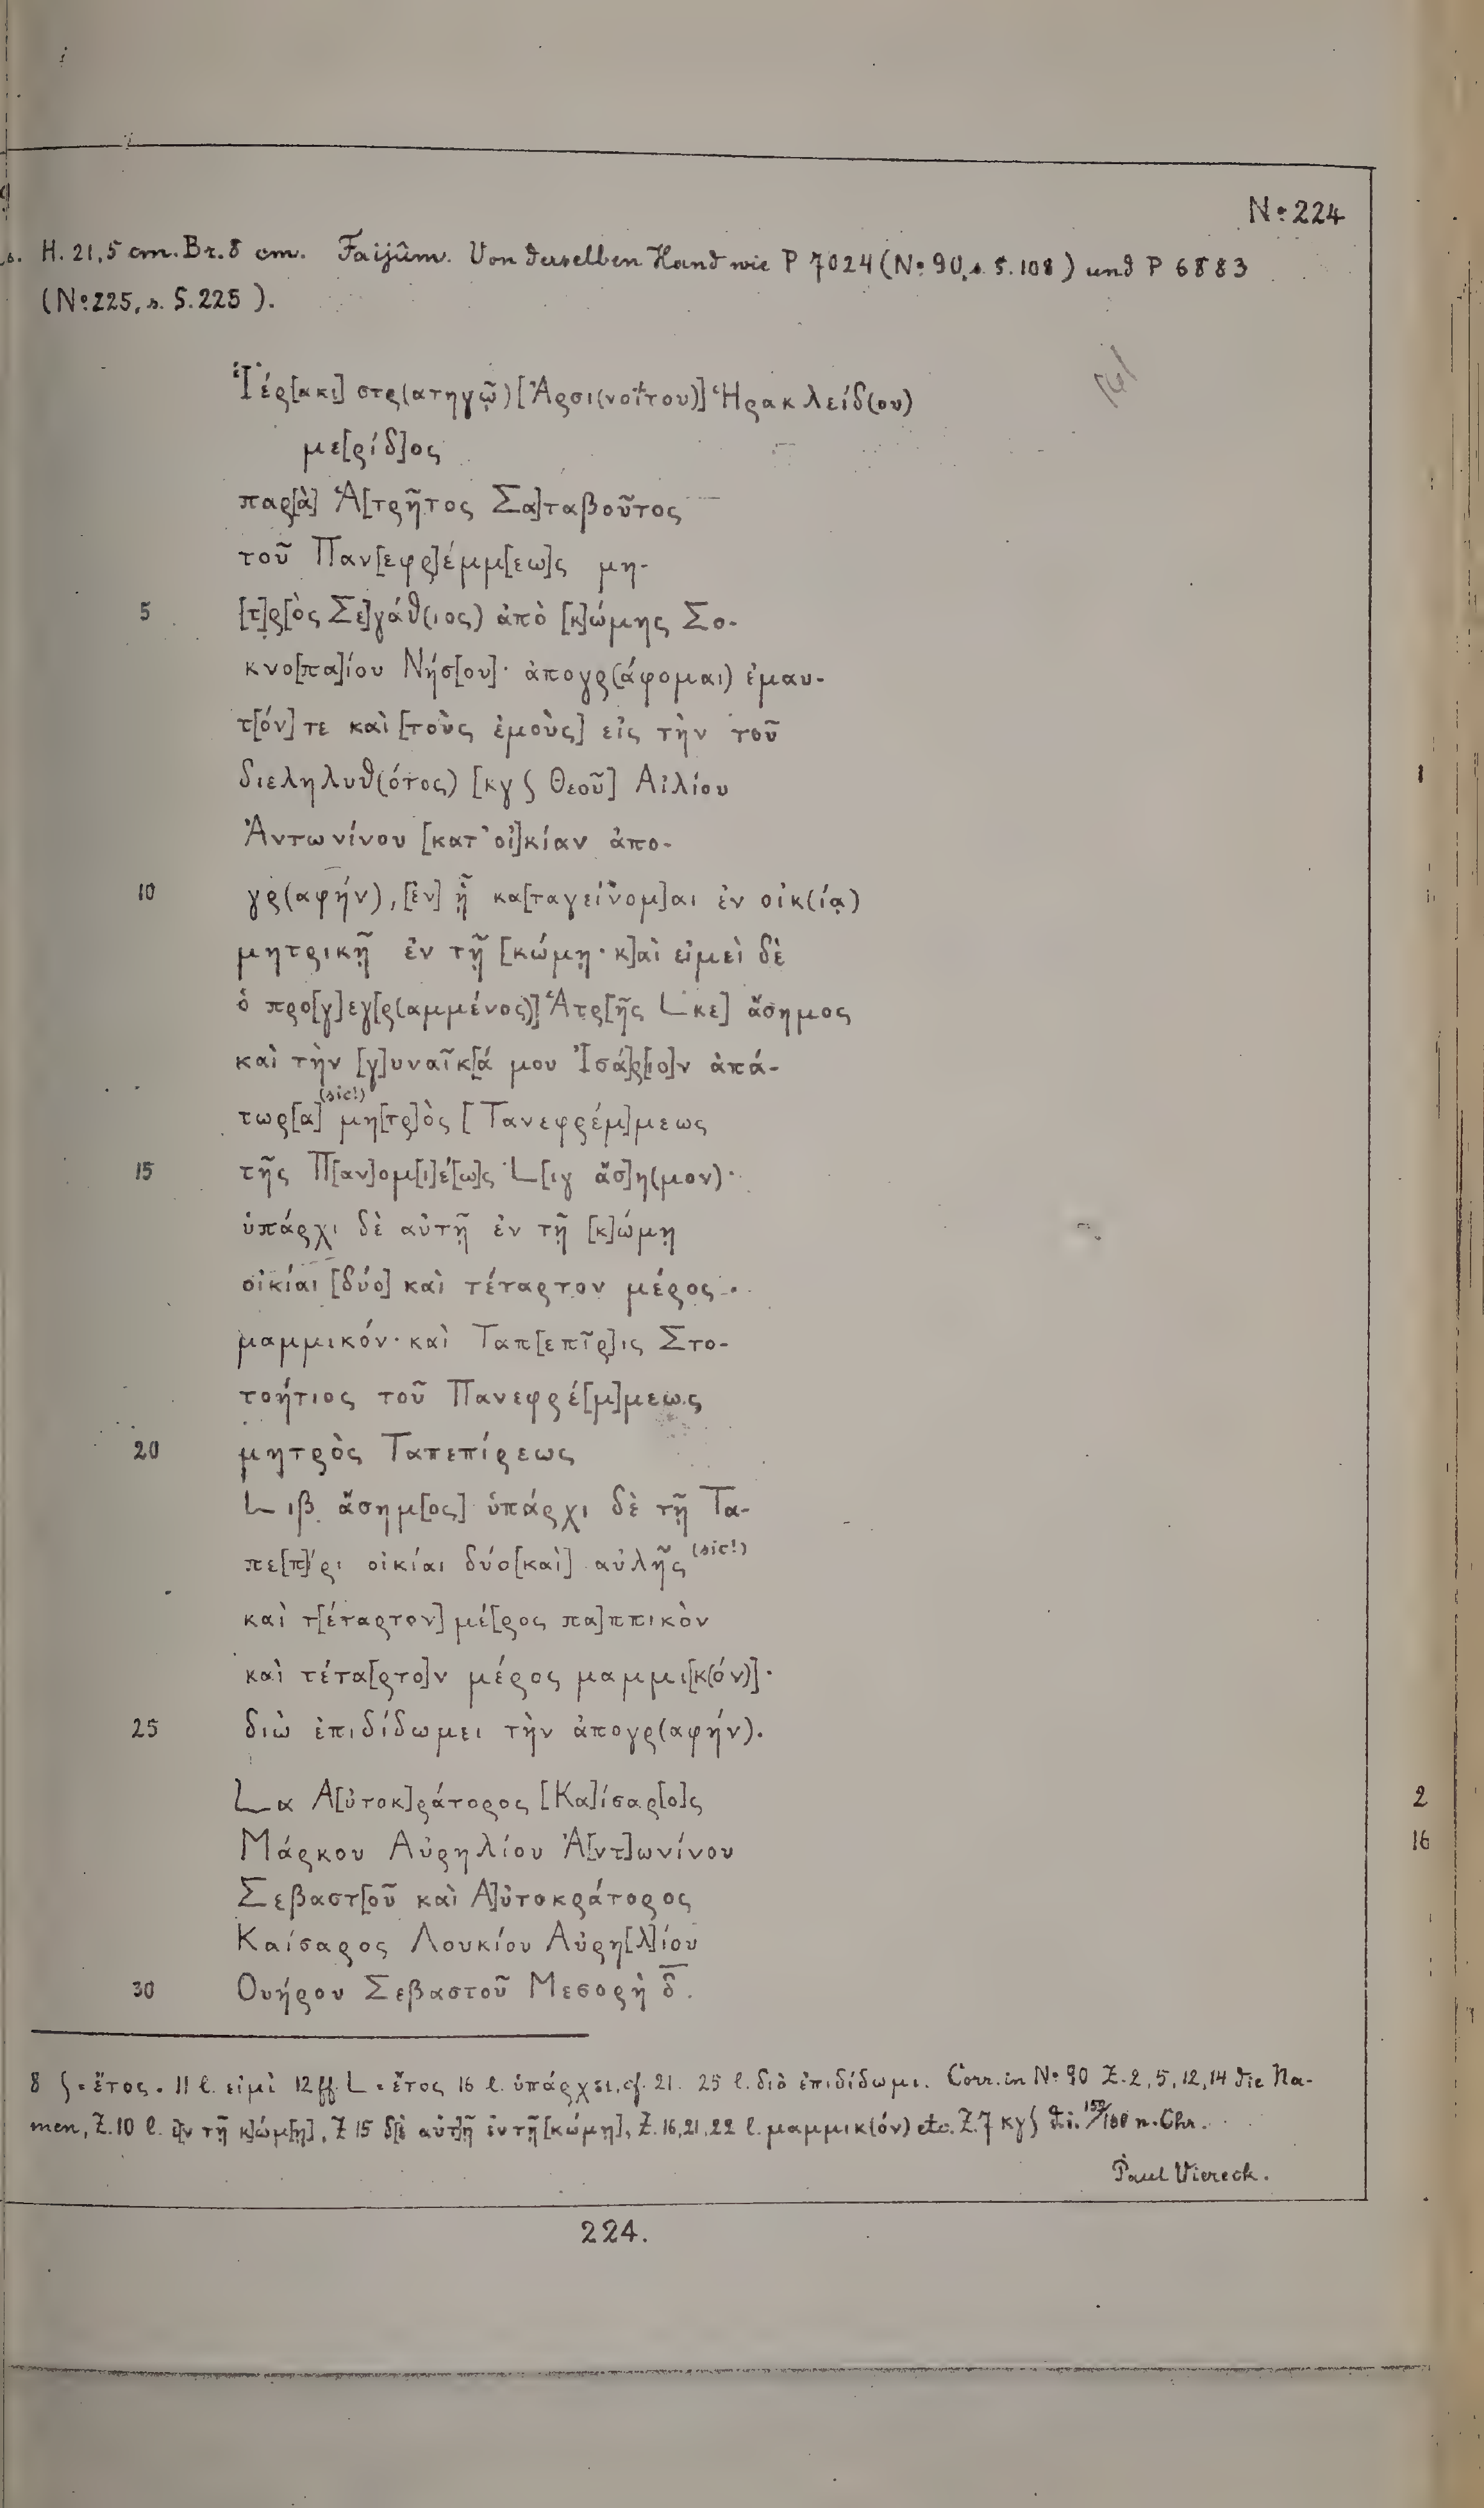 No: 224
H. 21,5 cm. Br. 8 cm. Faijûm. Von derselben Hand wie P 7024 (No: 90, s. S. 108) und P 6883
(No: 225, s. S. 225).
Ἱέρ[ακι] στρ(ατηγῷ) [Ἀρσι(νοΐτου)] Ἡρακλείδ(ου)
με[ρίδ]ος
παρ[ὰ] Ἁ[τρῆτος Σα]ταβοῦτος
τοῦ Παν[εφρ]έμμ[εω]ς μη-
5 [τ]ρ[ὸς Σε]γάθ(ιος) ἀπὸ [κ]ώμης Σο-
κνο[πα]ίου Νήσ[ου]· ἀπογρ(άφομαι) ἐμαυ-
τ[όν] τε καὶ [τοὺς ἐμοὺς] εἰς τὴν τοῦ
διεληλυθ(ότος) [κγ ʃ Θεοῦ] Αἰλίου
Ἀντωνίνου [κατ' οἰ]κίαν ἀπο-
10 γρ(αφήν), [ἐν] ᾗ κα[ταγείνομ]αι ἐν οἰκ(ίᾳ)
μητρικῇ ἐν τῇ [κώμῃ· κ]αὶ εἰμεὶ δὲ
ὁ προ[γ]εγ[ρ(αμμένος)] Ἁτρ[ῆς L κε] ἄσημος
καὶ τὴν [γ]υναῖκ[ά μου Ἰσά]ρ[ιο]ν ἀπά-
τωρ[α] (sic!) μη[τρ]ὸς [Τανεφρέμ]μεως
15 τῆς Π[αν]ομ[ι]έ[ω]ς L[ιγ ἄσ]η(μον)·
ὑπάρχι δὲ αὐτῇ ἐν τῇ [κ]ώμῃ
οἰκίαι [δύο] καὶ τέταρτον μέρος
μαμμικόν· καὶ Ταπ[επῖρ]ις Στο-
τοήτιος τοῦ Πανεφρέ[μ]μεως
20 μητρὸς Ταπεπίρεως
L ιβ ἄσημ[ος] ὑπάρχι δὲ τῇ Τα-
πε[π]ίρι οἰκίαι δύο [καὶ] αὐλῆς (sic!)
καὶ τ[έταρτον] μέ[ρος πα]ππικὸν
καὶ τέτα[ρτο]ν μέρος μαμμι[κ(όν)]·
25 διὼ ἐπιδίδωμει τὴν ἀπογρ(αφήν).
L α Α[ὐτοκ]ράτορος [Κα]ίσαρ[ο]ς
Μάρκου Αὐρηλίου Ἀ[ντ]ωνίνου
Σεβαστ[οῦ καὶ Α]ὐτοκράτορος
Καίσαρος Λουκίου Αὐρη[λ]ίου
30 Ουήρου Σεβαστοῦ Μεσορὴ δ̅.
8 ʃ = ἔτος. 11 l. εἰμὶ 12 ff. L = ἔτος 16 l. ὑπάρχει, cf. 21. 25 l. διὸ ἐπιδίδωμι. Corr. in No 90 Z. 2, 5, 12, 14 die Na-
men, Z. 10 l. ἐ[ν τῇ κ]ώμ[ῃ], Z 15 δ[ὲ αὐτ]ῇ ἐν τῇ [κώμῃ], Z. 16, 21, 22 l. μαμμικ(όν) etc. Z. 7 κγ ʃ d. i. 159/160 n. Chr.
Paul Viereck.
224.
2
16